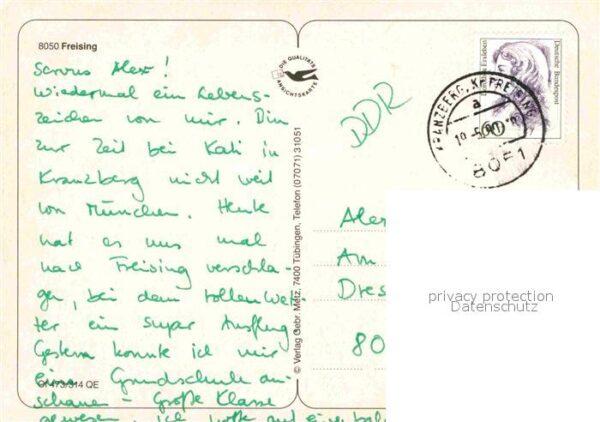 8050 Freising
Servus Alex!
Wiedermal ein Lebens-
zeichen von mir. Bin
zur Zeit bei Kati in
Kranzberg nicht weit
von München. Heute
hat es uns mal
nach Freising verschla-
gen, bei dem tollen Wet-
ter ein super Ausflug
Gestern konnte ich mir
eine Grundschule an-
schauen - Große Klasse
gewesen. Ich hoffe auf
Of 473/314 QE
DIE QUALITÄTS
ANSICHTSKARTE
© Verlag Gebr. Metz, 7400 Tübingen, Telefon (07071) 31051
DDR
Deutsche Bundespost
KRANZBERG, KR FREISING
a
8051
Alex
Am
Dres
80
privacy protection
Datenschutz